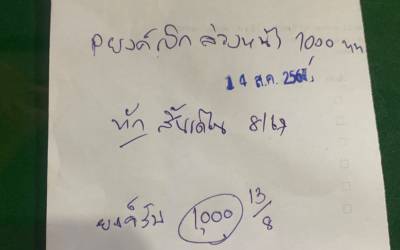 Pยงค์ เบิก ล่วงหน้า 1000 บาท
14 ส.ค. 256
หัก สิ้นเดือน 8/67
ยงค์รับ 1,000 13/8